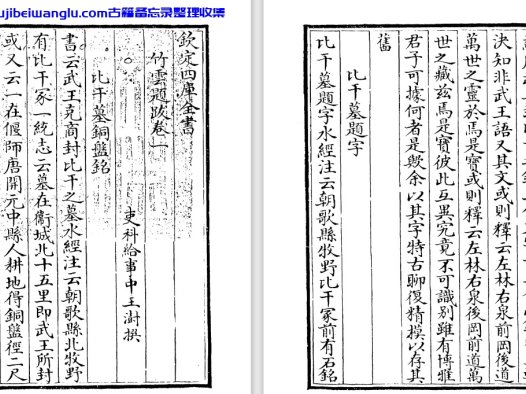 ujibeiwanglu.com古籍备忘录整理收集
欽定四庫全書
竹雲題跋卷一
吏科給事中王澍撰
比干墓銅盤銘
書云武王克商封比干之墓水經注云朝歌縣北牧野
有比干冢一統志云墓在衛城北十五里即武王所封
或又云一在偃師唐開元中縣人耕地得銅盤徑二尺
決知非武王語又其文或則釋云左林右泉後岡前道
萬世之靈於焉是寶或則釋云左林右泉後岡前道萬
世之藏兹焉是寶彼此互異究竟不可識別雖有博雅
君子可據何者是歟余以其字特古聊復精摸以存其
舊
比干墓題字
比干墓題字水經注云朝歌縣牧野比干冢前有石銘